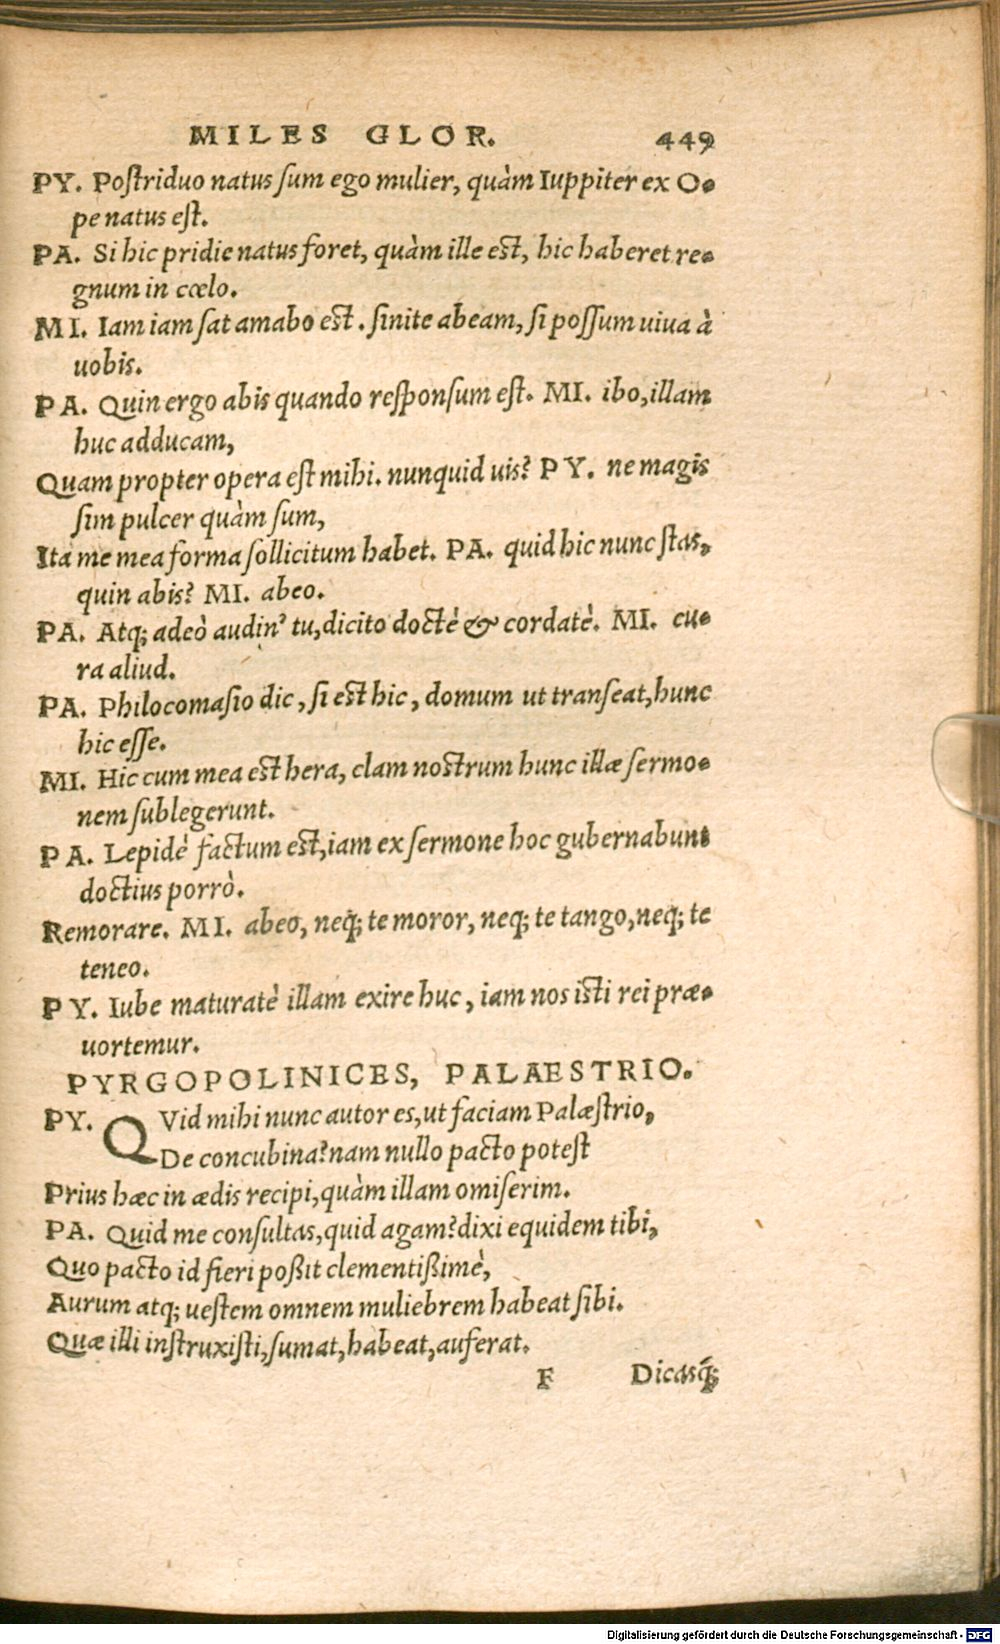 MILES GLOR. 449
PY. Poſtriduo natus ſum ego mulier, quàm Iuppiter ex O-
pe natus eſt.
PA. Si hic pridie natus foret, quàm ille eſt, hic haberet re-
gnum in cœlo.
MI. Iam iam ſat amabo eſt. ſinite abeam, ſi poſſum uiua à
uobis.
PA. Quin ergo abis quando reſponſum eſt. MI. ibo, illam
huc adducam,
Quam propter opera eſt mihi. nunquid uis? PY. ne magis
ſim pulcer quàm ſum,
Ita me mea forma ſollicitum habet. PA. quid hic nunc ſtas,
quin abis? MI. abeo.
PA. Atq; adeò audin' tu, dicito doctè & cordatè. MI. cu-
ra aliud.
PA. Philocomaſio dic, ſi eſt hic, domum ut tranſeat, hunc
hic eſſe.
MI. Hic cum mea eſt hera, clam noſtrum hunc illæ ſermo-
nem ſublegerunt.
PA. Lepidè factum eſt, iam ex ſermone hoc gubernabunt
doctius porrò.
Remorare. MI. abeo, neq; te moror, neq; te tango, neq; te
teneo.
PY. Iube maturatè illam exire huc, iam nos iſti rei præ-
uortemur.
PYRGOPOLINICES, PALAESTRIO.
PY. QVid mihi nunc autor es, ut faciam Palæſtrio,
De concubina? nam nullo pacto poteſt
Prius hæc in ædis recipi, quàm illam omiſerim.
PA. Quid me conſultas, quid agam? dixi equidem tibi,
Quo pacto id fieri poßit clementißimè,
Aurum atq; ueſtem omnem muliebrem habeat ſibi.
Quæ illi inſtruxiſti, ſumat, habeat, auferat.
F Dicasq́;
Digitalisierung gefördert durch die Deutsche Forschungsgemeinschaft - DFG